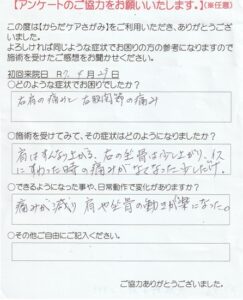 【アンケートのご協力をお願いいたします。】(※任意)
この度は【からだケアさがみ】をご利用いただき、ありがとうござ
いました。
よろしければ同じような症状でお困りの方の参考になりますので
施術を受けたご感想をお聞かせください。
初回来院日 R7. 4月29日
○どのような症状でお困りでしたか?
右肩の痛みと右股関節の痛み
○施術を受けてみて、その症状はどのようになりましたか?
肩はすんなり上がる、右の坐骨は少し上がり、イス
にすわった時の痛みがなくなった
○できるようになった事や、日常動作で変化がありますか?
痛みが減り 肩や坐骨の動きが楽になった。
○その他ご自由にご記入ください。
ご協力ありがとうございました。